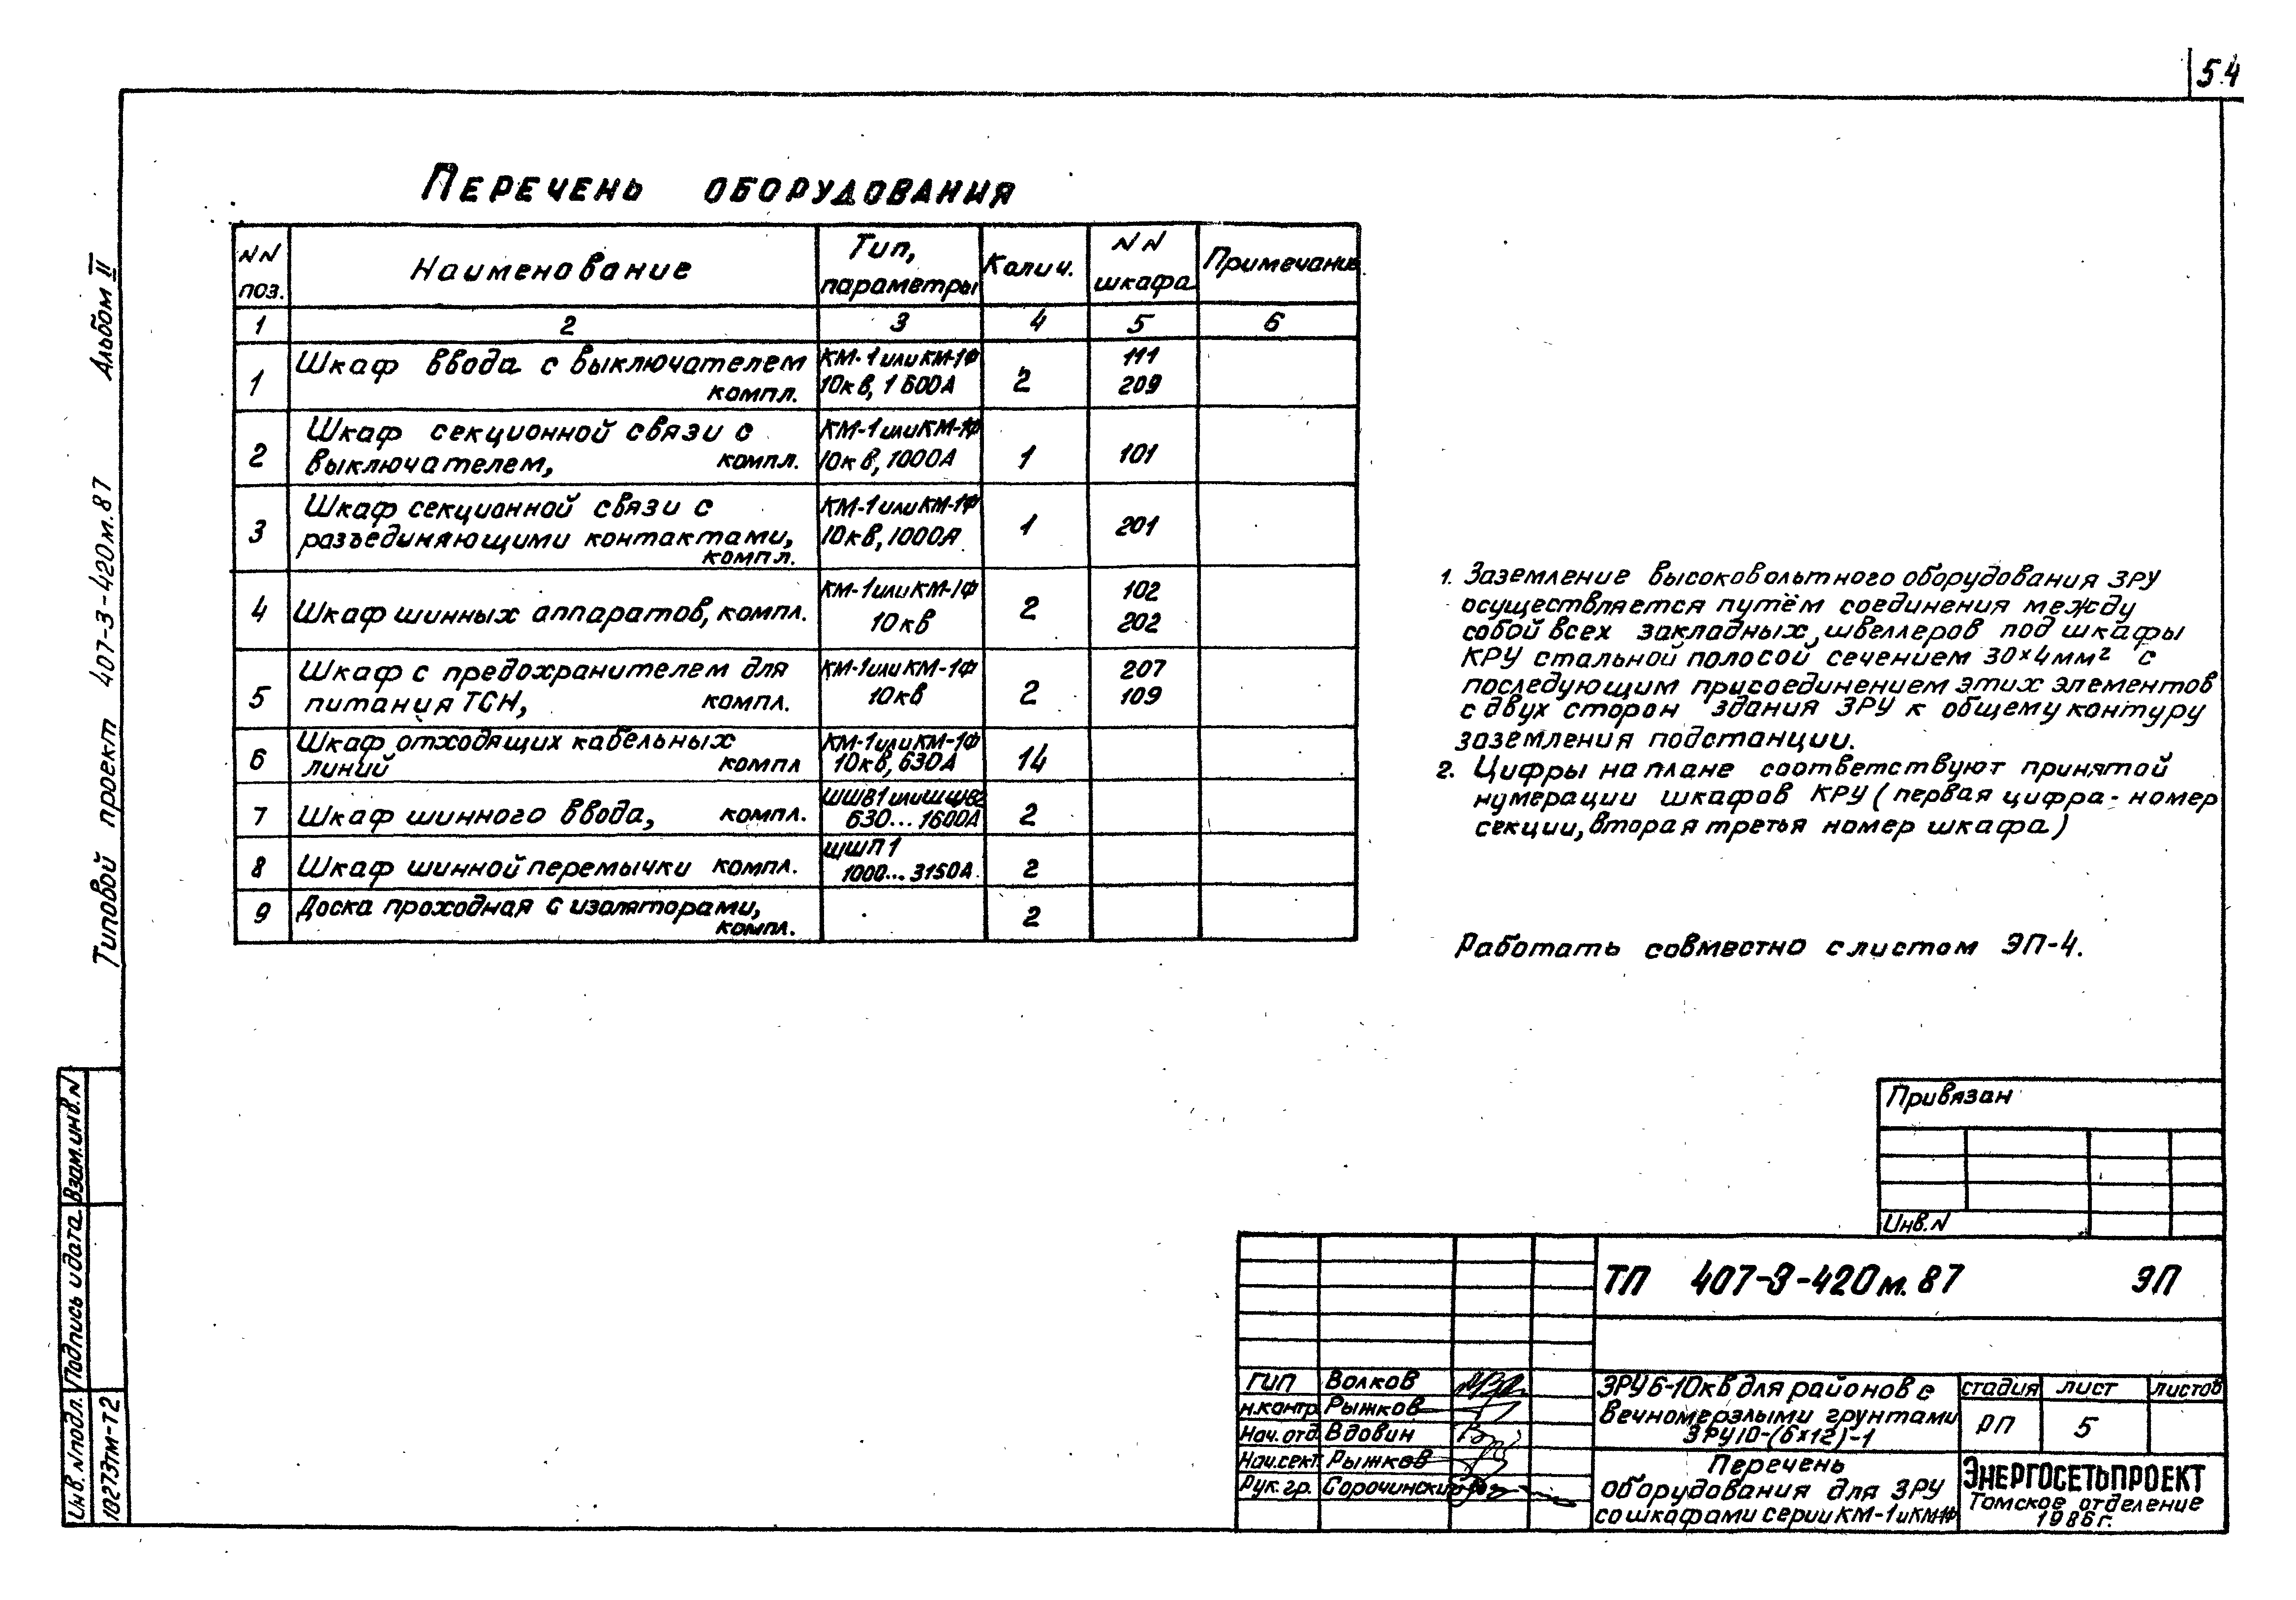 54
Альбом II
Типовой проект 407-3-420м.87
Перечень оборудования
NN поз.
Наименование
Тип, параметры
Колич.
NN шкафа
Примечание
1 2 3 4 5 6
1 Шкаф ввода с выключателем компл. КМ-1 или КМ-1Ф 10кв, 1600А 2 111 209
2 Шкаф секционной связи с выключателем, компл. КМ-1 или КМ-1Ф 10кв, 1000А 1 101
3 Шкаф секционной связи с разъединяющими контактами, компл. КМ-1 или КМ-1Ф 10кв, 1000А 1 201
4 Шкаф шинных аппаратов, компл. КМ-1 или КМ-1Ф 10кв 2 102 202
5 Шкаф с предохранителем для питания ТСН, компл. КМ-1 или КМ-1Ф 10кв 2 207 109
6 Шкаф отходящих кабельных линий компл КМ-1 или КМ-1Ф 10кв, 630А 14
7 Шкаф шинного ввода, компл. ШШВ1 или ШШВ2 630...1600А 2
8 Шкаф шинной перемычки компл. ШШП1 1000...3150А 2
9 Доска проходная с изоляторами, компл. 2
1. Заземление высоковольтного оборудования ЗРУ
осуществляется путём соединения между
собой всех закладных швеллеров под шкафы
КРУ стальной полосой сечением 30×4мм² с
последующим присоединением этих элементов
с двух сторон здания ЗРУ к общему контуру
заземления подстанции.
2. Цифры на плане соответствуют принятой
нумерации шкафов КРУ (первая цифра-номер
секции, вторая третья номер шкафа)
Работать совместно с листом ЭП-4.
Привязан
Инв.N
ТП 407-3-420м.87 ЭП
ГИП Волков
н.контр. Рыжков
Нач.отд. Вдовин
Нач.сект. Рыжков
Рук.гр. Сорочинский
ЗРУ 6-10кв для районов с
вечномерзлыми грунтами
ЗРУ10-(6×12)-1
стадия лист листов
РП 5
Перечень
оборудования для ЗРУ
со шкафами серии КМ-1 и КМ-1Ф
ЭНЕРГОСЕТЬПРОЕКТ
Томское отделение
1986г.
Взам.инв.N
Подпись и дата
Инв.N подл.
10273тм-т2